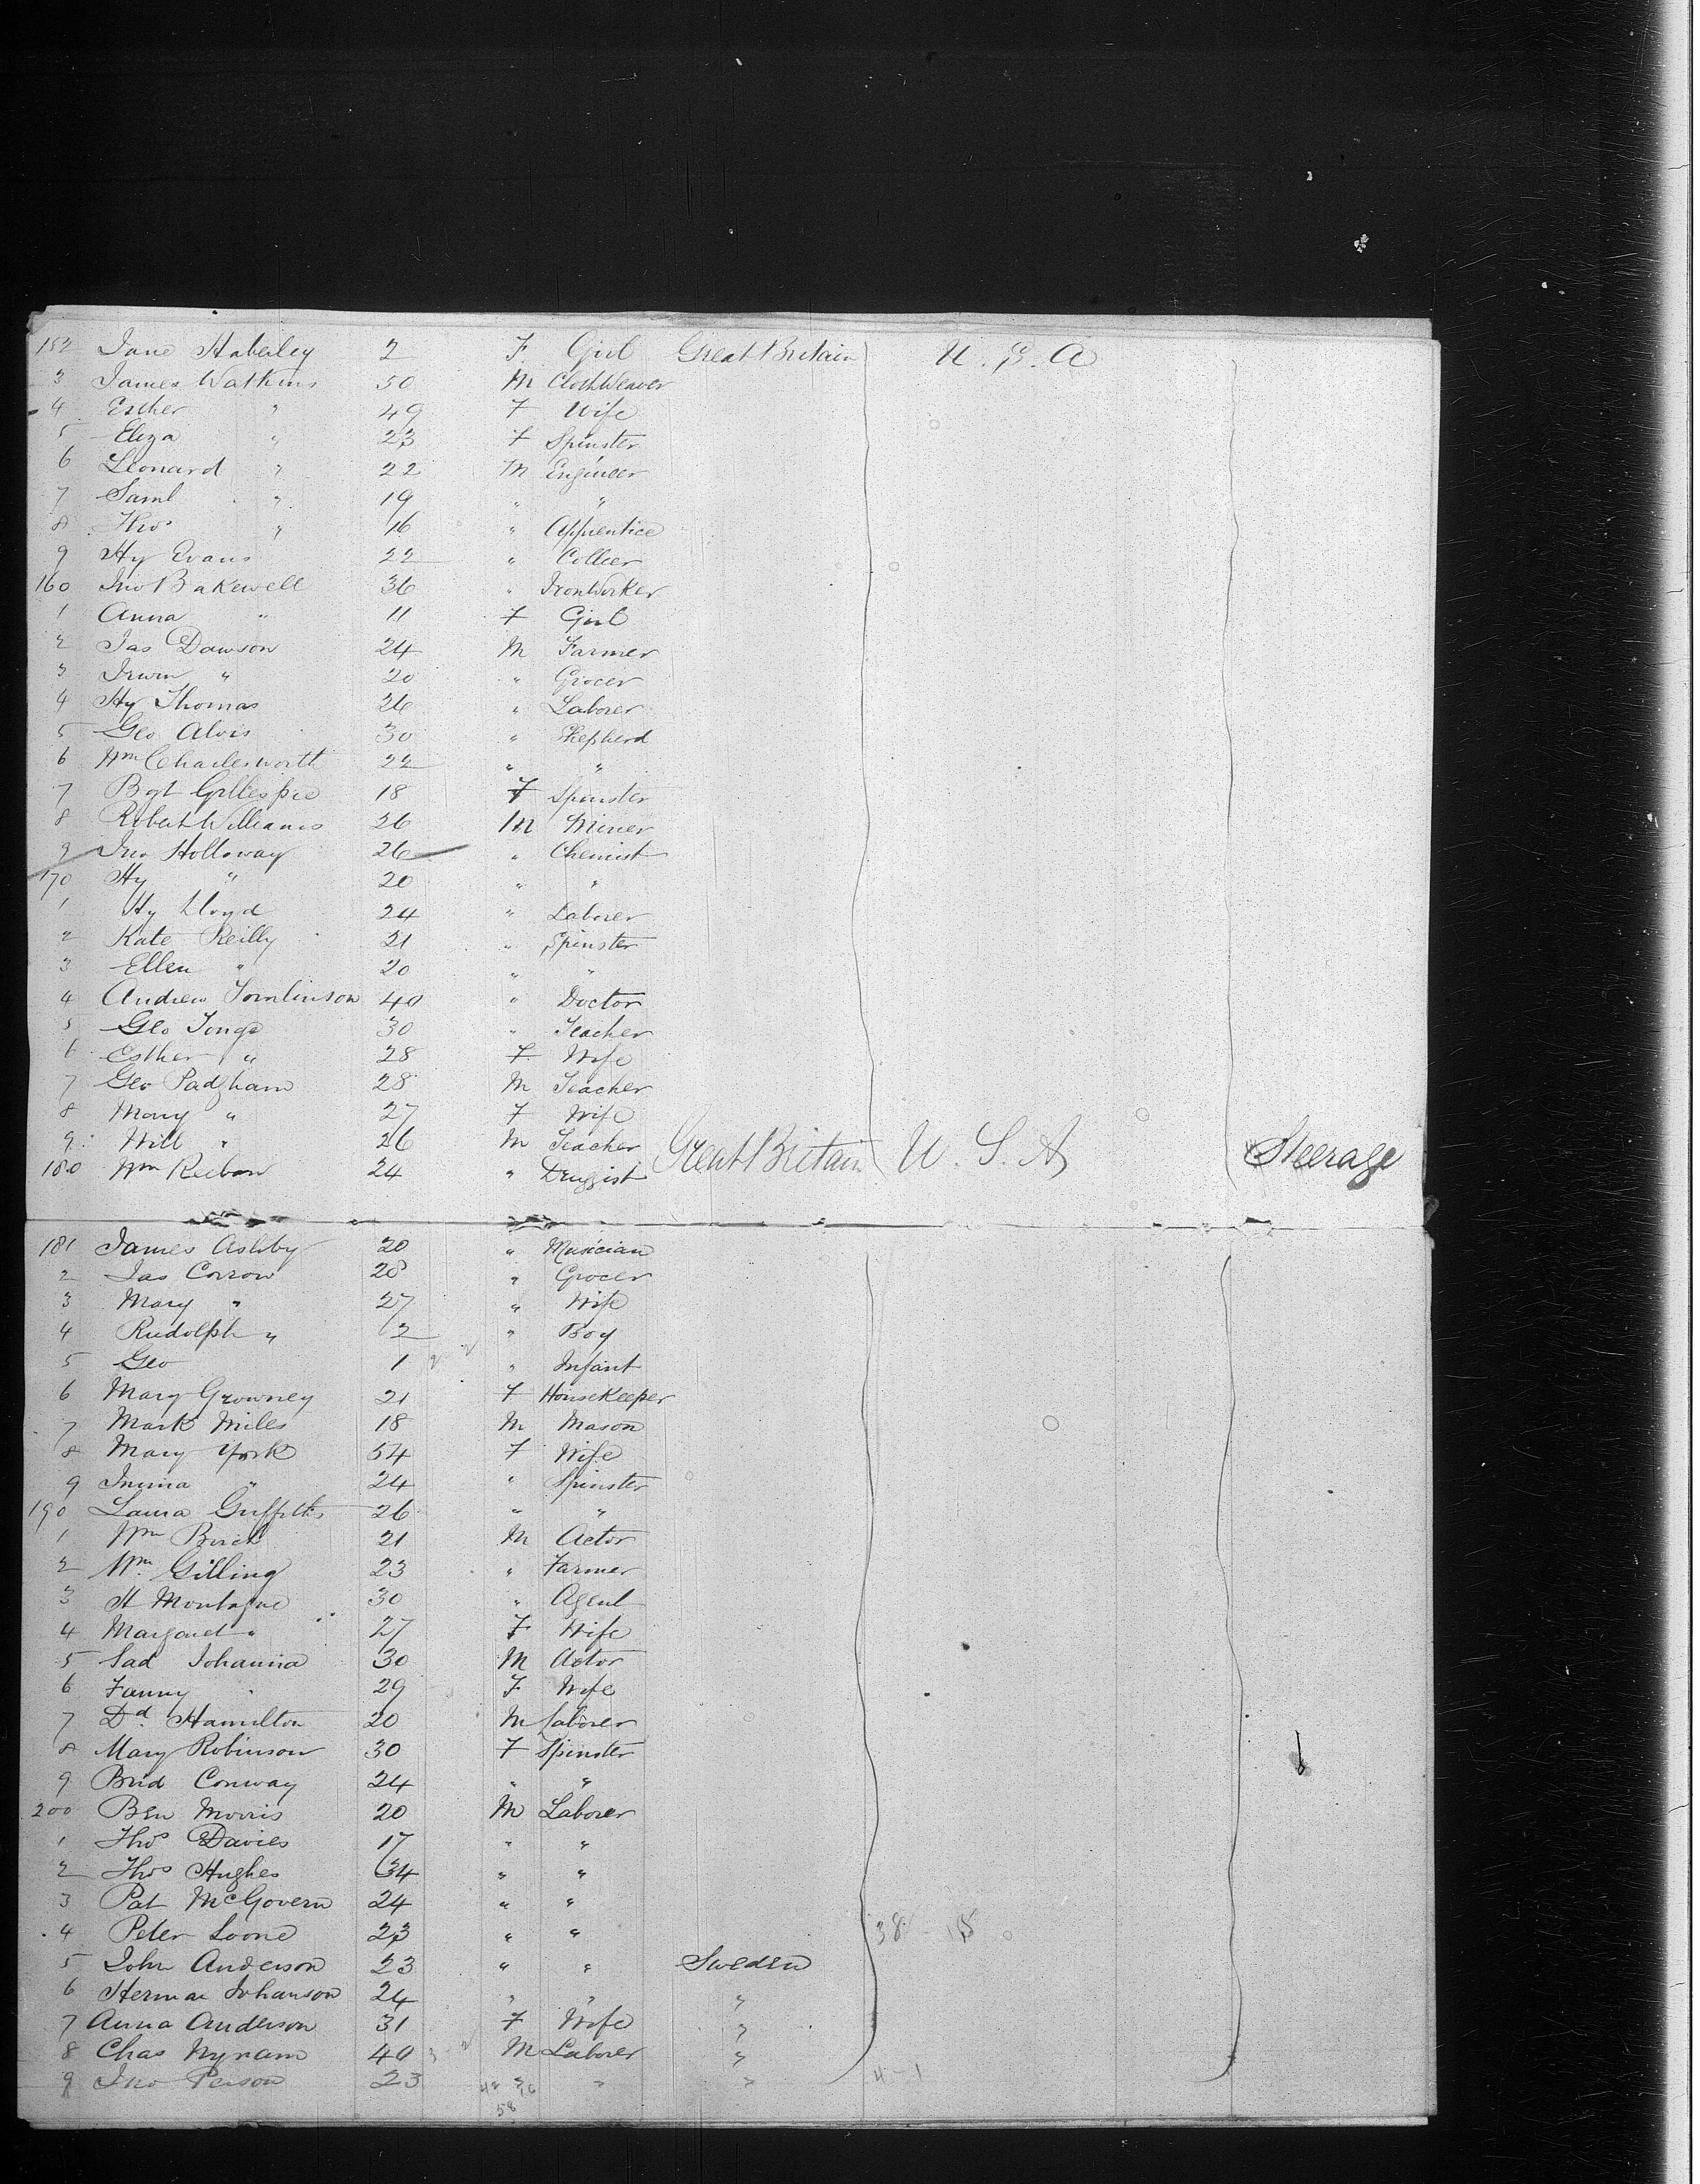 152 Jane Haberley 2 F Girl Great Britain U. S. A
3 James Watkins 50 M Cloth Weaver
4 Esther " 49 F Wife
5 Eliza " 23 F Spinster
6 Leonard " 22 M Engineer
7 Saml " 19 " "
8 Thos " 16 " Apprentice
9 Hy Evans 22 " Collier
160 Jno Bakewell 36 " Iron Worker
1 Anna " 11 F Girl
2 Jas Dawson 24 M Farmer
3 Irwin " 20 " Grocer
4 Hy Thomas 26 " Laborer
5 Geo Alvis 30 " Shepherd
6 Wm Charlesworth 22 " "
7 Bgt Gillespie 18 F Spinster
8 Robert Williams 26 M Miner
9 Jno Holloway 26 " Chemist
170 Hy " 20 " "
1 Hy Lloyd 24 " Laborer
2 Kate Reilly 21 " Spinster
3 Ellen " 20 " "
4 Andrew Tomlinson 40 " Doctor
5 Geo Tonge 30 " Teacher
6 Esther " 28 F Wife
7 Geo Padgham 28 M Teacher
8 Mary " 27 F Wife
9 Will " 26 M Teacher Great Britain U. S. A Steerage
180 Wm Reeban 24 " Druggist
181 James Ashby 20 " Musician
2 Jas Corrow 28 " Grocer
3 Mary " 27 " Wife
4 Rudolph " 2 " Boy
5 Geo 1 " Infant
6 Mary Growney 21 F HouseKeeper
7 Mark Miles 18 M Mason
8 Mary York 54 F Wife
9 " 24 " Spinster
190 Laura Griffiths 26 " "
1 Wm Birch 21 M Actor
2 Wm Gilling 23 " Farmer
3 H Montague 30 " Agent
4 Margaret " 27 F Wife
5 Sad Johanna 30 M Actor
6 Fanny " 29 F Wife
7 Dd Hamilton 20 M Laborer
8 Mary Robinson 30 F Spinster
9 Brid Conway 24 " "
200 Ben Morris 20 M Laborer
1 Thos Davies 17 " "
2 Thos Hughes 34 " "
3 Pat McGovern 24 " "
4 Peter Loone 23 " " 38 - 15
5 John Anderson 23 " " Sweden
6 Herman Johanson 24 " " "
7 Anna Anderson 31 F Wife "
8 Chas Nyram 40 M Laborer "
9 Jno Person 23 " " " 4 - 1
58